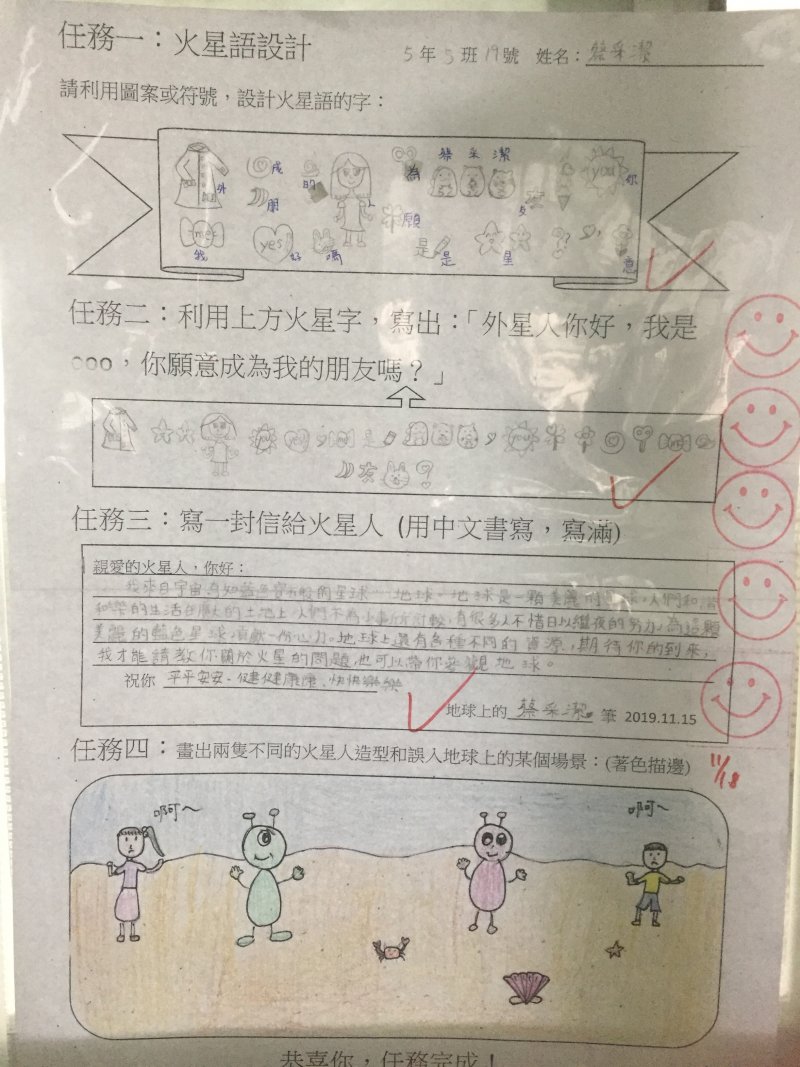 任務一：火星語設計 5年5班19號 姓名：蔡采潔
請利用圖案或符號，設計火星語的字：
外 成 的 人 為 蔡采潔 友 you 你
朋 願
me 我 yes 好 嗎 是 是 星 意
任務二：利用上方火星字，寫出：「外星人你好，我是
○○○，你願意成為我的朋友嗎？」
任務三：寫一封信給火星人 (用中文書寫，寫滿)
親愛的火星人，你好：
我來自宇宙為知藍色寶石般的星球—地球。地球是一顆美麗的星球，人們和諧
和樂的生活在廣大的土地上，人們不為小事斤斤計較，有很多人不惜日以繼夜的努力，為這顆
美麗的藍色星球貢獻一份心力。地球上還有各種不同的資源，期待你的到來，
我才能請教你關於火星的問題，也可以帶你參觀地球。
祝你 平平安安、健健康康、快快樂樂
地球上的 蔡采潔 筆 2019.11.15
任務四：畫出兩隻不同的火星人造型和誤入地球上的某個場景：(著色描邊)
11/18
啊～ 啊～
恭喜你，任務完成！